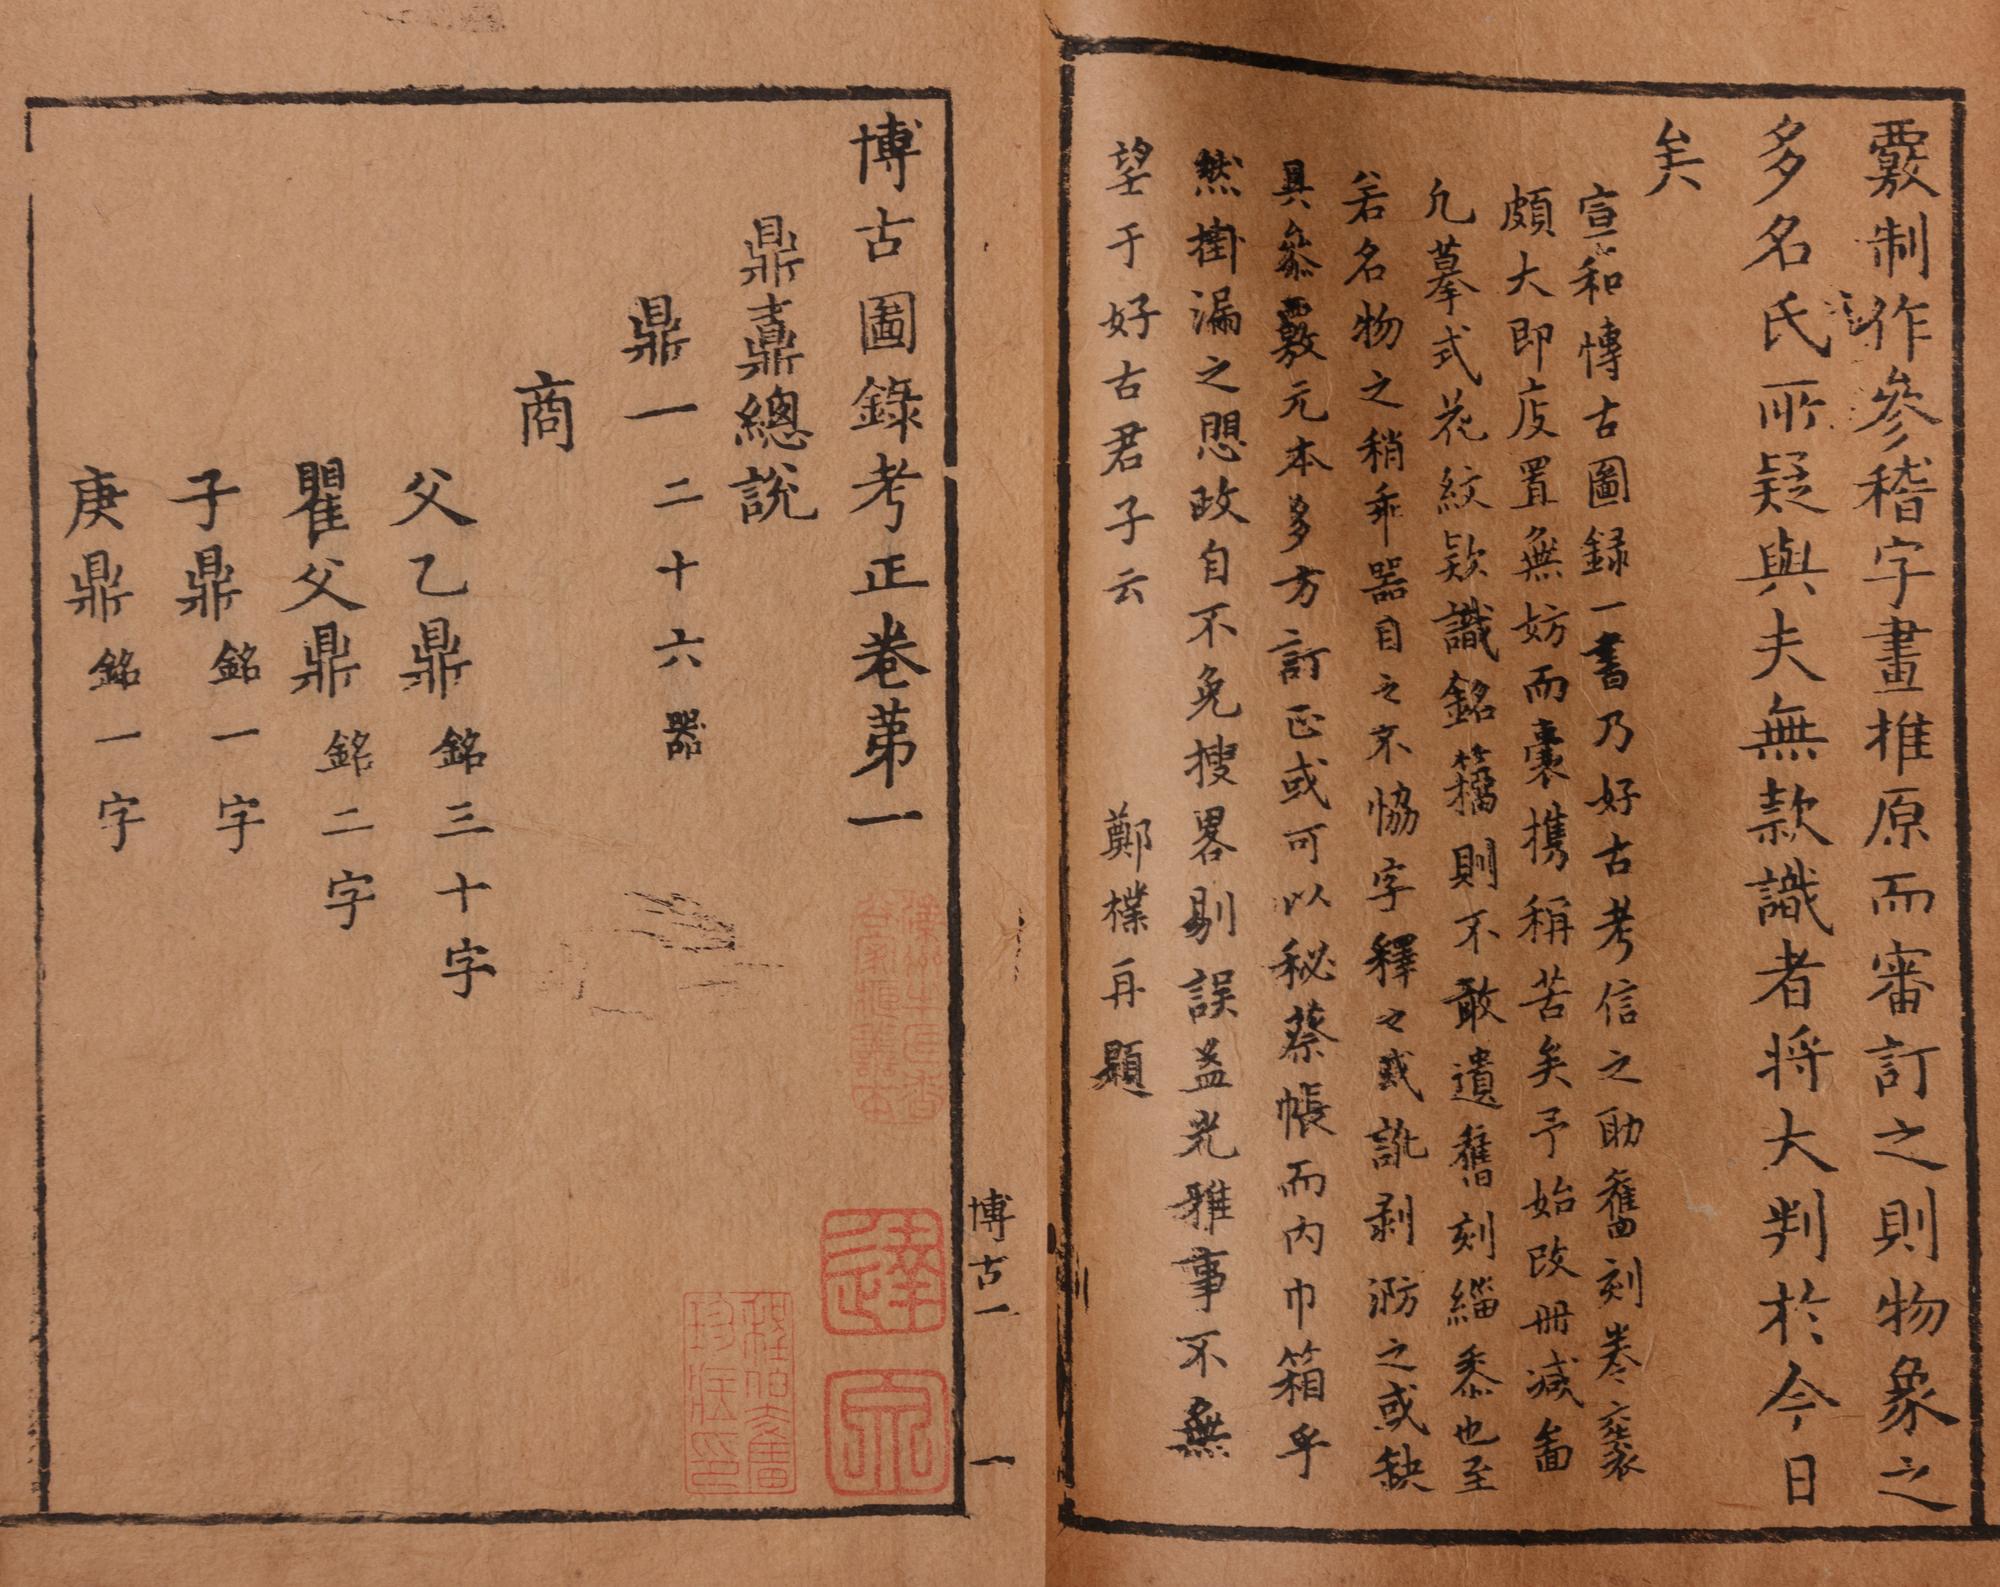 覈制作參稽字畫推原而審訂之則物象之
多名氏所疑與夫無款識者將大判於今日
矣
宣和博古圖録一書乃好古考信之助舊刻卷袠
頗大即庋置無妨而囊携稱苦矣予始改冊減啚
凢摹式花紋欵識銘籀則不敢遺舊刻緇黍也至
若名物之稍乖器目之不協字釋之或訛剥泐之或缺
具叅覈元本多方訂正或可以秘蔡帳而内巾箱乎
然掛漏之愳政自不免搜畧剔誤盖光雅事不無
望于好古君子云 鄭樸再題
博古圖錄考正卷苐一
鼎鼒總說
鼎一 二十六器
商
父乙鼎 銘三十字
瞿父鼎 銘二字
子鼎 銘一字
庚鼎 銘一字
博古一 一